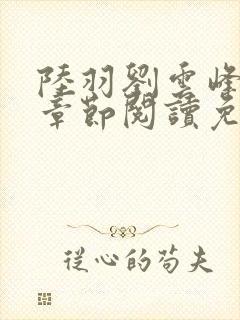 陸羽劉雲峰
章節閱讀免
從心的苟夫